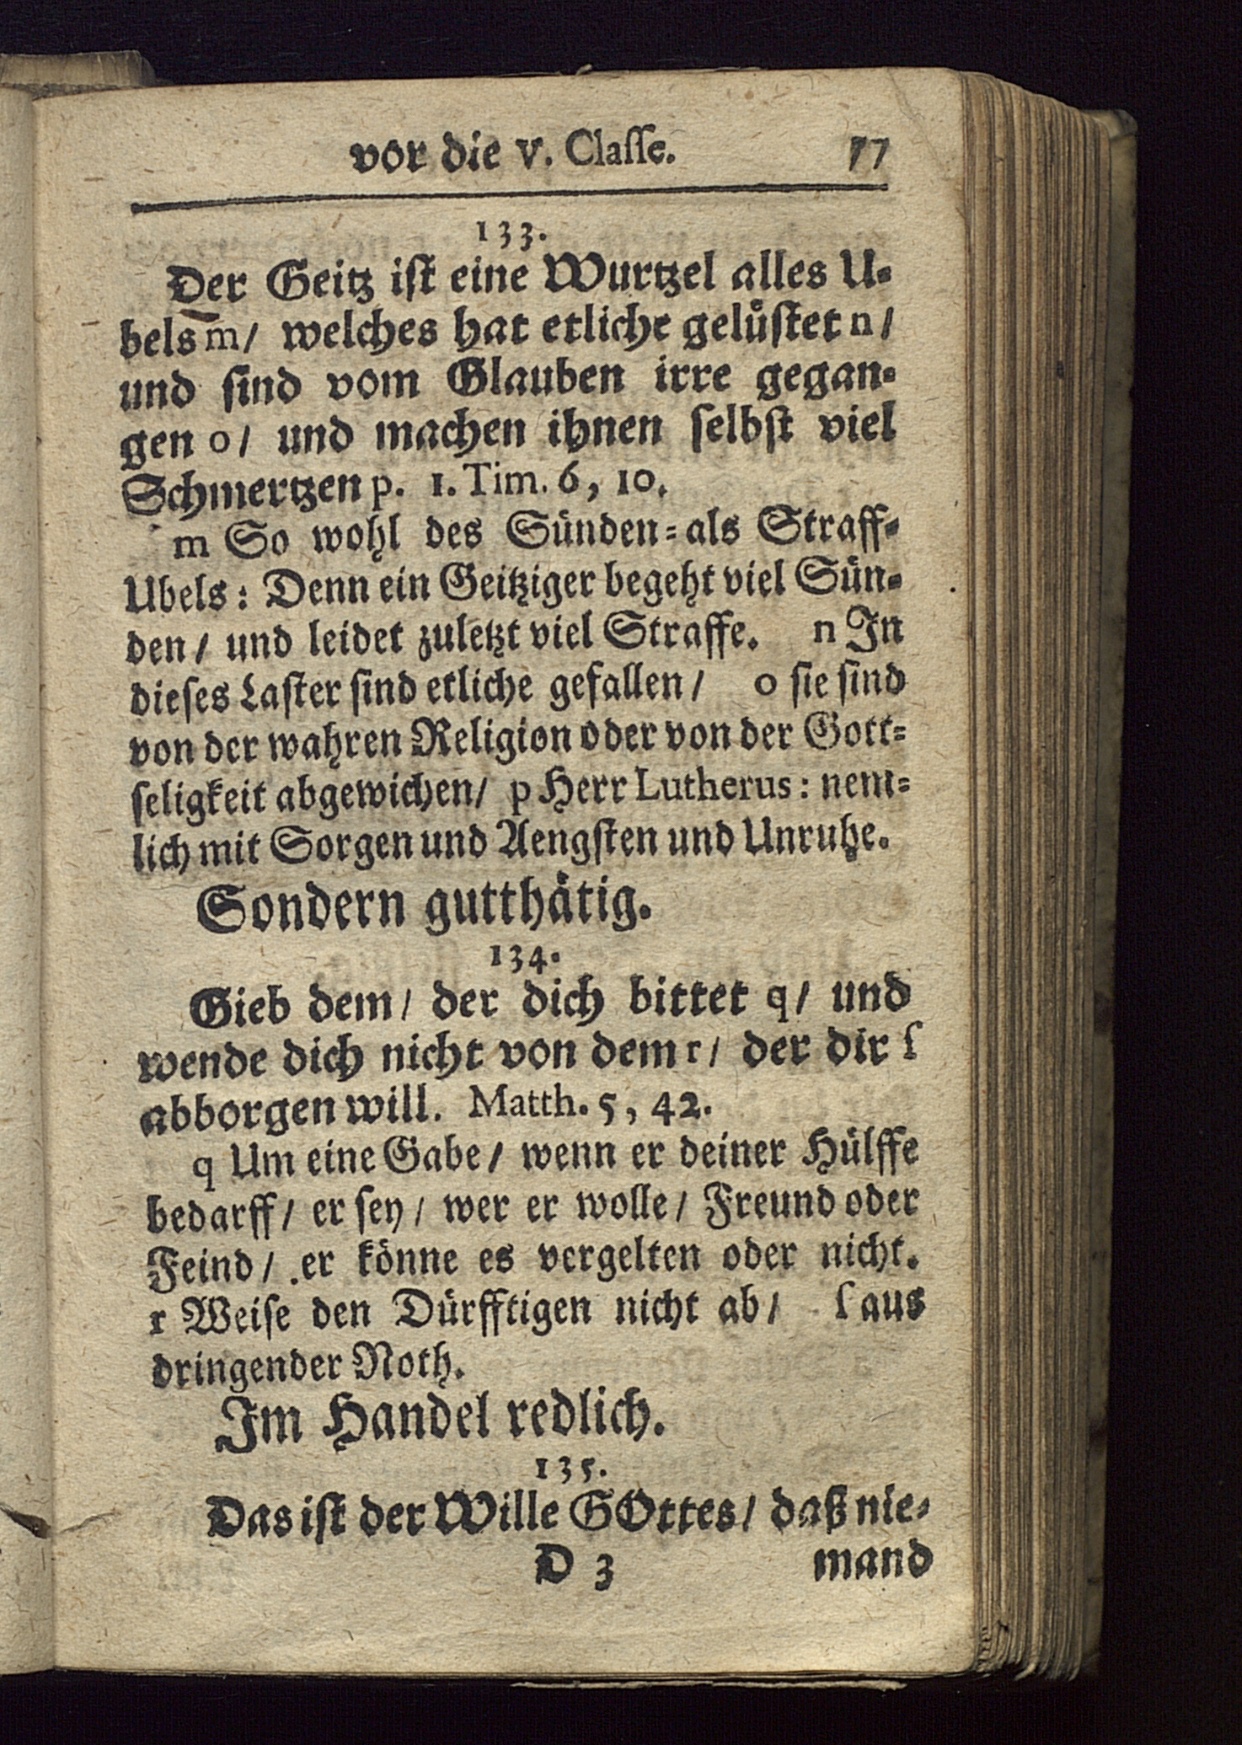 vor die V. Classe. 77
133.
Der Geitz ist eine Wurtzel alles U-
bels m/ welches hat etliche gelüstet n/
und sind vom Glauben irre gegan-
gen o/ und machen ihnen selbst viel
Schmertzen p. 1. Tim. 6, 10.
m So wohl des Sünden-als Straff-
Ubels: Denn ein Geitziger begeht viel Sün-
den/ und leidet zuletzt viel Straffe. n In
dieses Laster sind etliche gefallen/ o sie sind
von der wahren Religion oder von der Gott-
seligkeit abgewichen/ p Herr Lutherus: nem-
lich mit Sorgen und Aengsten und Unruhe.
Sondern gutthätig.
134.
Gieb dem/ der dich bittet q/ und
wende dich nicht von dem r/ der dir ſ
abborgen will. Matth. 5, 42.
q Um eine Gabe/ wenn er deiner Hülffe
bedarff/ er sey/ wer er wolle/ Freund oder
Feind/ er könne es vergelten oder nicht.
r Weise den Dürfftigen nicht ab/ ſ aus
dringender Noth.
Im Handel redlich.
135.
Das ist der Wille GOttes/ daß nie-
D 3 mand